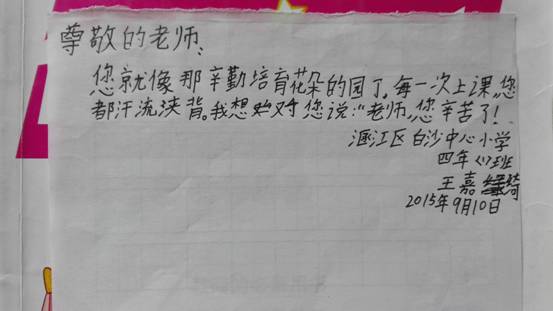 尊敬的老师、
您就像那辛勤培育花朵的园丁。每一次上课，您
都汗流浃背。我想对您说：“老师，您辛苦了！
涵江区白沙中心小学
四年(1)班
王嘉 琦
2015年9月10日